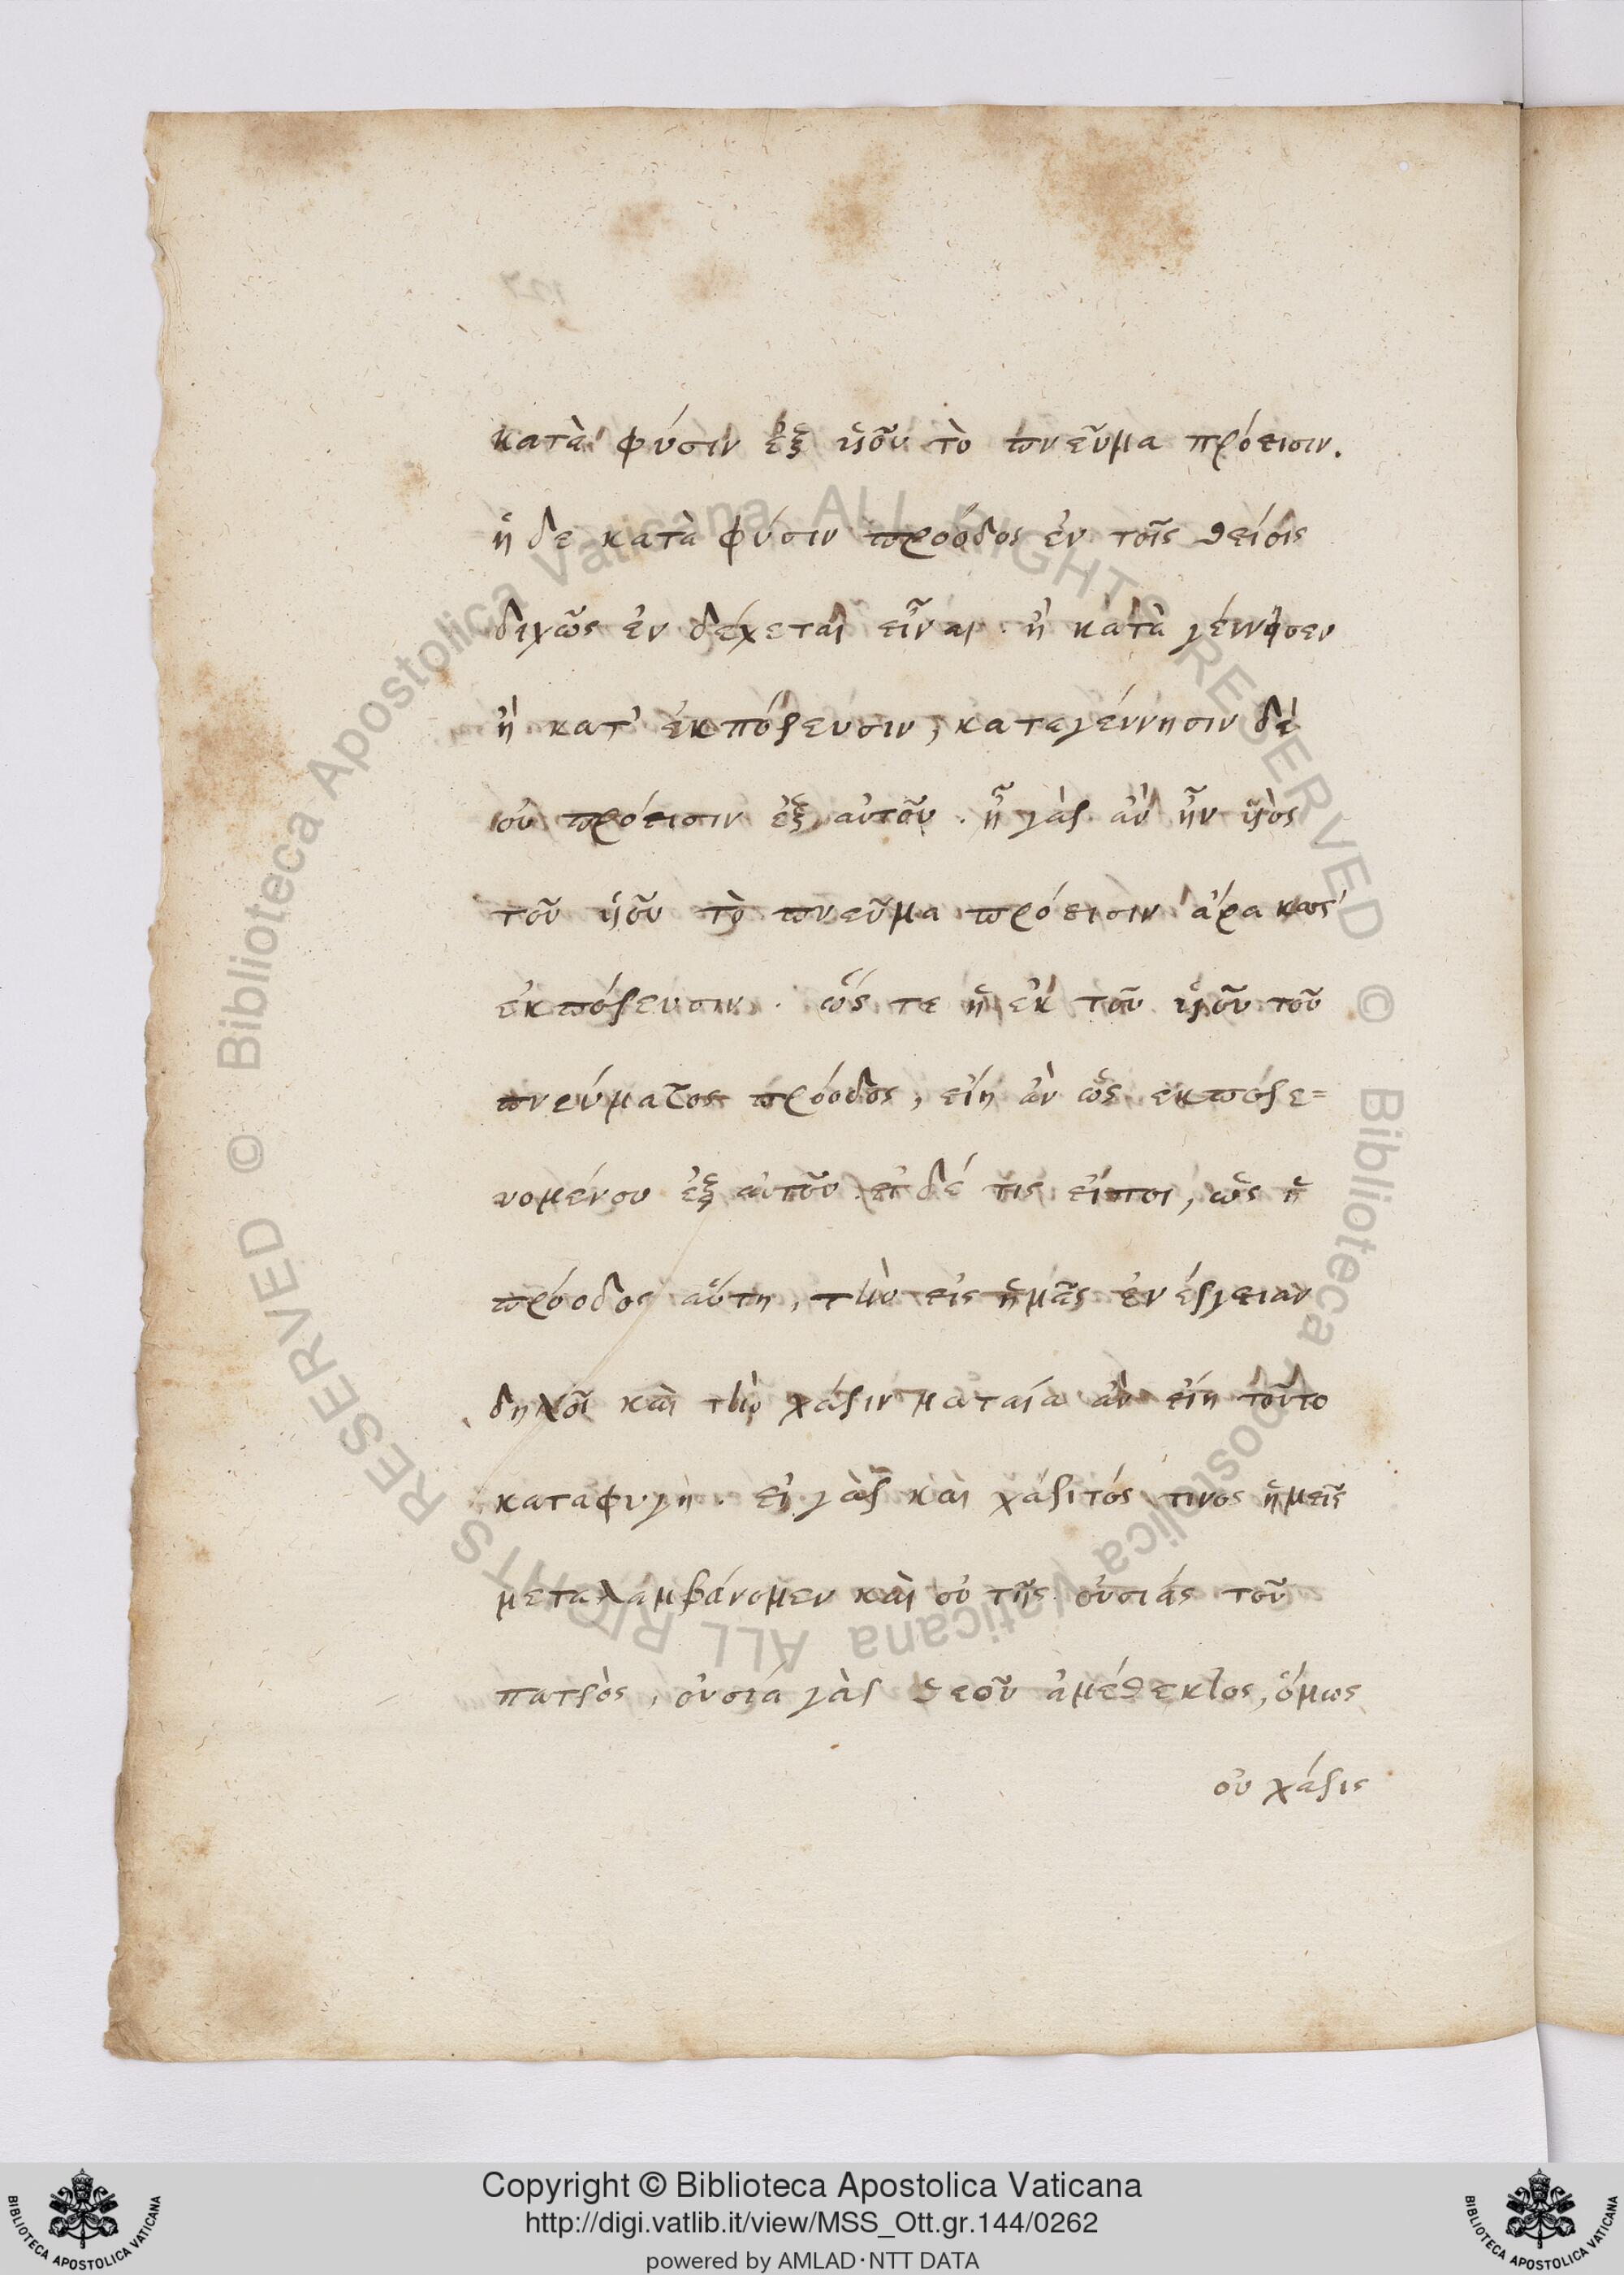 κατὰ φύσιν ἐξ ὑιοῦ τὸ πνεῦμα πρόεισιν.
ἡ δε κατὰ φύσιν πρόοδος ἐν τοῖς θείοις
διχῶς ἐν δέχεται εἶναι · ἢ κατὰ γέννησεν
ἢ κατ' ἐκπόρευσιν, καταγέννησιν δὲ
οὐ πρόεισιν ἐξ αὐτοῦ . ἦ γὰρ ἂν ἦν ὑιὸς
τοῦ ὑιοῦ τὸ πνεῦμα πρόεισιν ἄρα
ἐκπόρευσιν . ὥς τε ἡ ἐκ τοῦ ὑιοῦ τοῦ
πνεύματος πρόοδος, εἴη ἂν ὡς εκπορε=
υομένου ἐξ αὐτοῦ . εἰ δέ τις εἴποι, ὡς ἡ
πρόοδος αὕτη, τὴν εἰς ἡμᾶς ἐνέργειαν
δηλοῖ καὶ τὴν χάριν ματαία ἂν εἴη τοῦτο
καταφυγὴ . εἰ γὰρ καὶ χάριτός τινος ἡμεῖς
μεταλαμβάνομεν καὶ οὐ τῆς οὐσιάς τοῦ
πατρὸς, οὐσιά γὰρ θεοῦ ἀμέθεκτος, ὅμως
οὐ χάρις
Copyright © Biblioteca Apostolica Vaticana
http://digi.vatlib.it/view/MSS_Ott.gr.144/0262
powered by AMLAD·NTT DATA
© Biblioteca Apostolica Vaticana ALL RIGHTS RESERVED
© Biblioteca Apostolica Vaticana ALL RIGHTS RESERVED
BIBLIOTECA APOSTOLICA VATICANA
BIBLIOTECA APOSTOLICA VATICANA